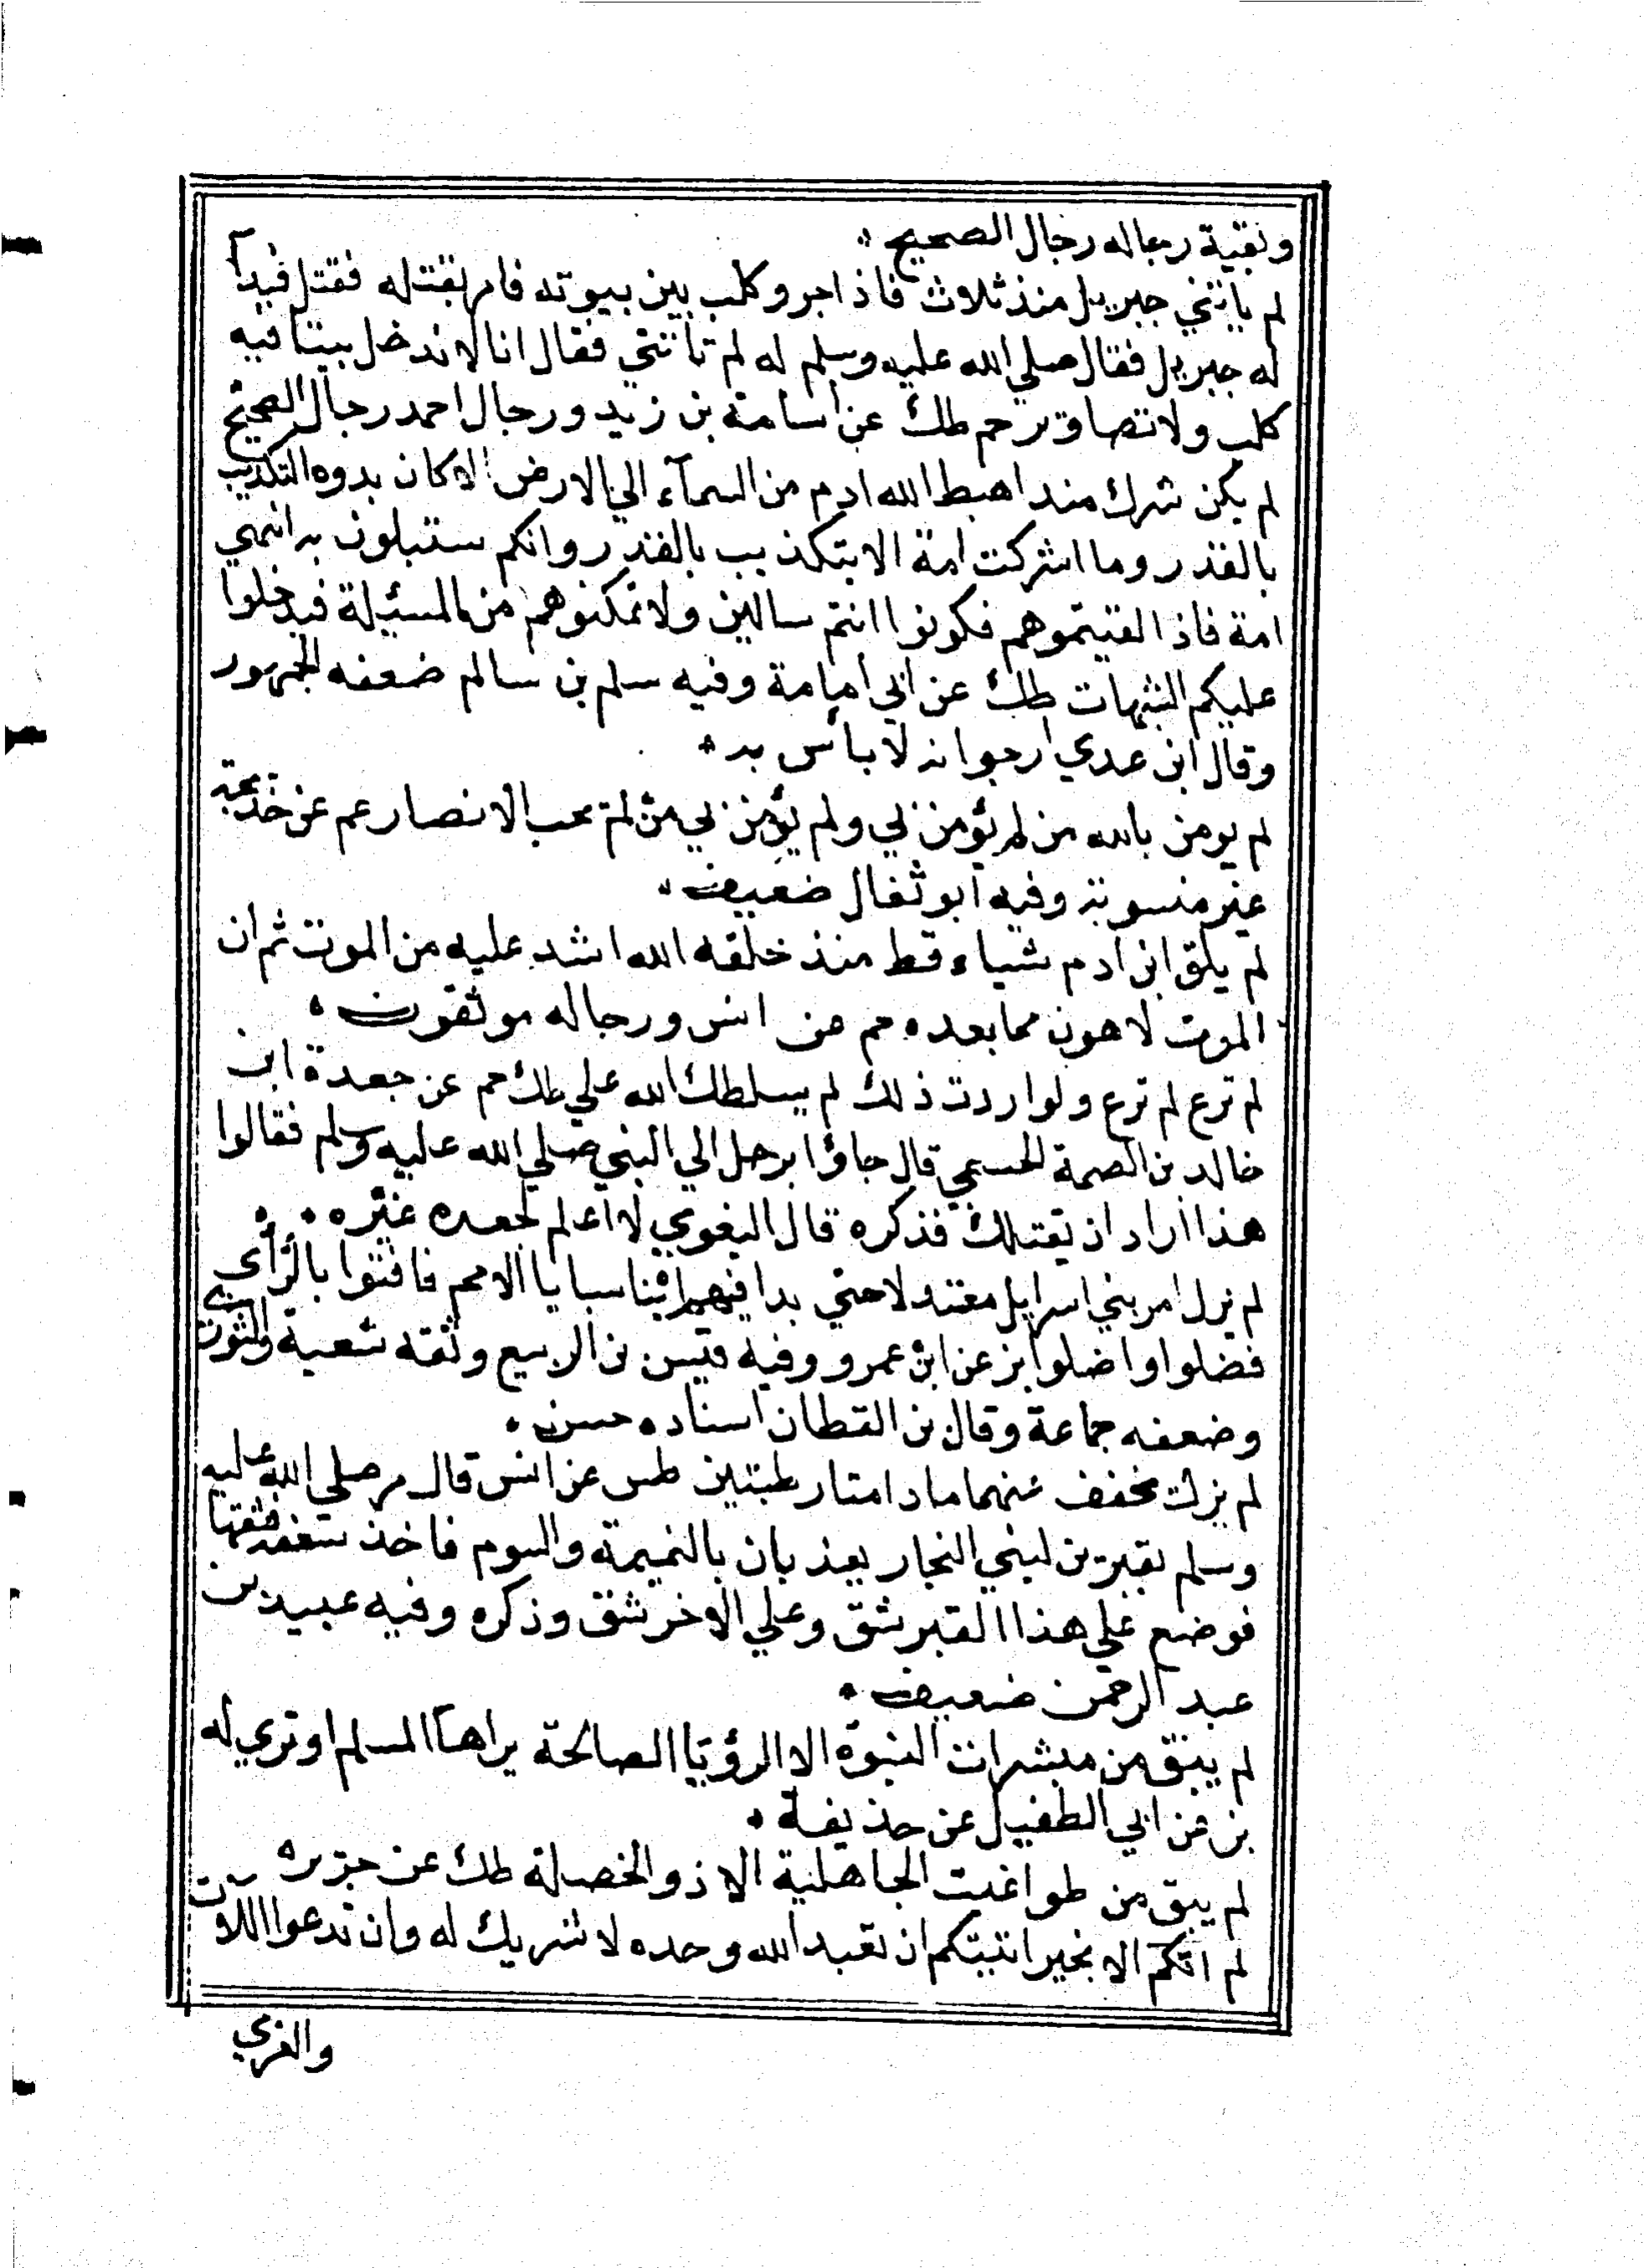 وبقية رجاله رجال الصحيح
لم ياتني جبريل منذ ثلاث فاذا جرو كلب بين بيوته فامر بقتله فقتل فبدا
له جبريل فقال صلي الله عليه وسلم له لم تاتني فقال انا لا ندخل بيتا فيه
كلب ولا تصاوير حم طك عن اسامة بن زيد ورجال احمد رجال الصحيح
لم يكن شرك منذ اهبط الله ادم من السمآء الي الارض الا كان بدوه التكذيب
بالقدر وما اشركت امة الا بتكذيب بالقدر وانكم ستبلون به ايتهي
امة فاذا لقيتموهم فكونوا انتم سالين ولا تمكنوهم من المسئلة فيدخلوا
عليكم الشبهات طك عن ابي أمامة وفيه سلم بن سالم ضعفه الجمهور
وقال ابن عدي ارجوا نه لا بأس به
لم يومن بالله من لم يؤمن بي ولم يؤمن بي من لم يحب الانصار عم عن خديجة
غير منسوبة وفيه ابو ثفال ضعيف
لم يلق ابن ادم شياء قط منذ خلقه الله اشد عليه من الموت ثم ان
الموت لاهون مما بعده حم عن انس ورجاله موثقون
لم ترع لم ترع ولو اردت ذلك لم يسلطك الله علي طك حم عن جعدة ابن
خالد بن الصمة الحسمي قال جاؤا برجل الي النبي صلي الله عليه وسلم فقالوا
هذا أراد ان يقتلك فذكره قال البغوي لا اعلم لجعده غيره
لم يزل امر بني اسرايل معتدلا حتي بدا فيهم ابنا سبايا الامم فافتوا بالرأي
فضلوا واضلوا بز عن ابن عمرو وفيه قيس بن الربيع وثقه شعبة والثوري
وضعفه جماعة وقال بن القطان اسناده حسن
لم يزل يخفف عنهما ما دامتا رطبتين طس عن انس قال مر صلي الله عليه
وسلم بقبرين لبني النجار يعذبان بالنميمة والبوم فاخذ سعفه فشقها
فوضع علي هذا القبر شق وعلي الاخر شق وذكره وفيه عبيد بن
عبد الرحمن ضعيف
لم يبق من مبشرات النبوة الا الرؤيا الصالحة يراها المسلم او تري له
بز عن ابي الطفيل عن حذيفة
لم يبق من طواغيت الجاهلية الا ذو الخصلة طك عن جرير
لم اتكم الا بخير اتيتكم ان تعبد الله وحده لا شريك له وان تدعوا اللات
والعزي